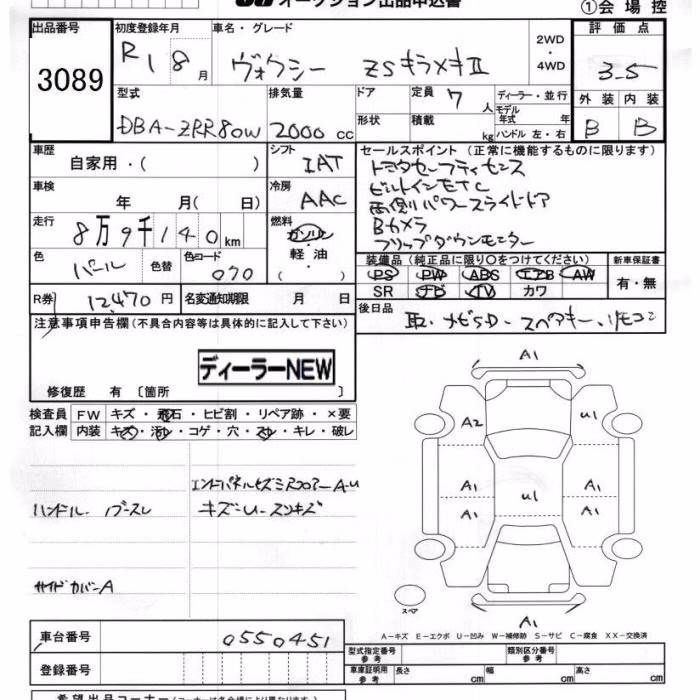 オークション出品申込書
①会場控
出品番号
3089
初度登録年月
R1 8月
車名・グレード
ヴォクシー ZSキラメキⅡ
2WD
・
4WD
評価点
3-5
外装 内装
B B
型式
DBA-ZRR80W
排気量
2000 cc
ドア
形状
定員 7 人
積載 kg
ディーラー・並行
モデル
年式 年
ハンドル 左・右
車歴
自家用・( )
シフト
IAT
車検
年 月( 日)
冷房
AAC
走行
8万9千140km
燃料
ガソリン
軽油
( )
色
パール
色替
色コード
070
R券 12,470円
名変通知期限 月 日
セールスポイント(正常に機能するものに限ります)
トヨタセーフティセンス
ビルトインETC
両側パワースライドドア
Bカメラ
フリップダウンモニター
装備品(純正品に限り○をつけてください)
PS PW ABS エアB AW
SR ナビ TV カワ
新車保証書
有・無
後日品
取、ナビSD、スペアキー、リモコン
注意事項申告欄(不具合内容等は具体的に記入して下さい)
ディーラーNEW
修復歴 有 〔箇所 〕
検査員
記入欄
FW キズ・飛石・ヒビ割・リペア跡・×要
内装 キズ・汚れ・コゲ・穴・スレ・キレ・破レ
ハンドル
サイドカバーA
A1
A2
U1
A1
A1
U1
A1
A1
A1
スペア
A-キズ E-エクボ U-凹み W-補修跡 S-サビ C-腐食 XX-交換済
車台番号
0550451
登録番号
型式指定番号
参考
類別区分番号
参考
車庫証明用
参考
長さ cm
幅 cm
高さ cm
希望出品コーナー